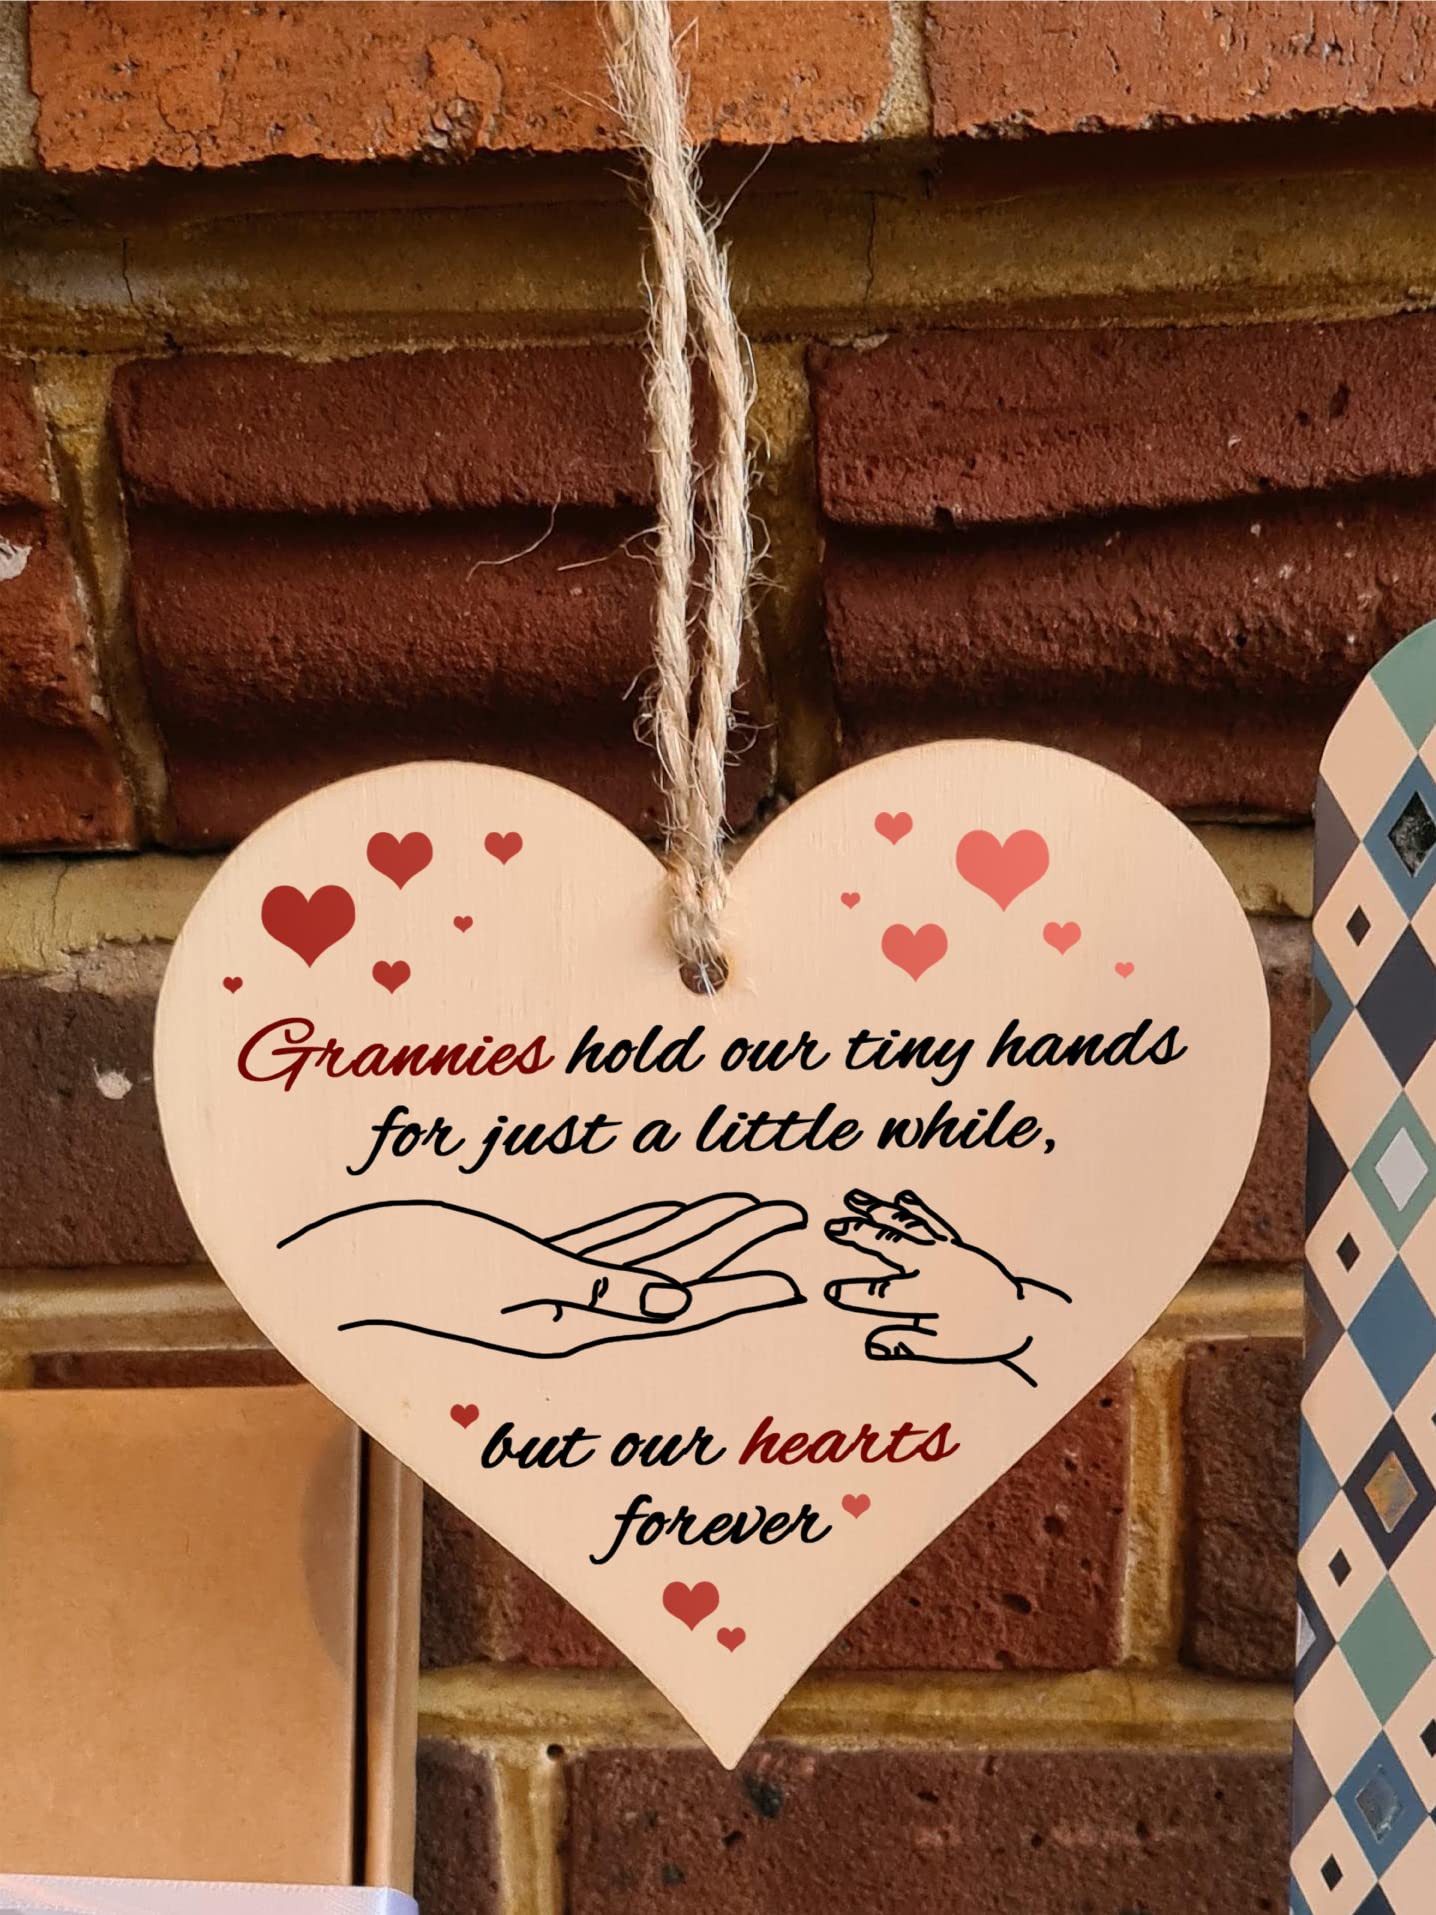 Grannies hold our tiny hands
for just a little while,
but our hearts
forever